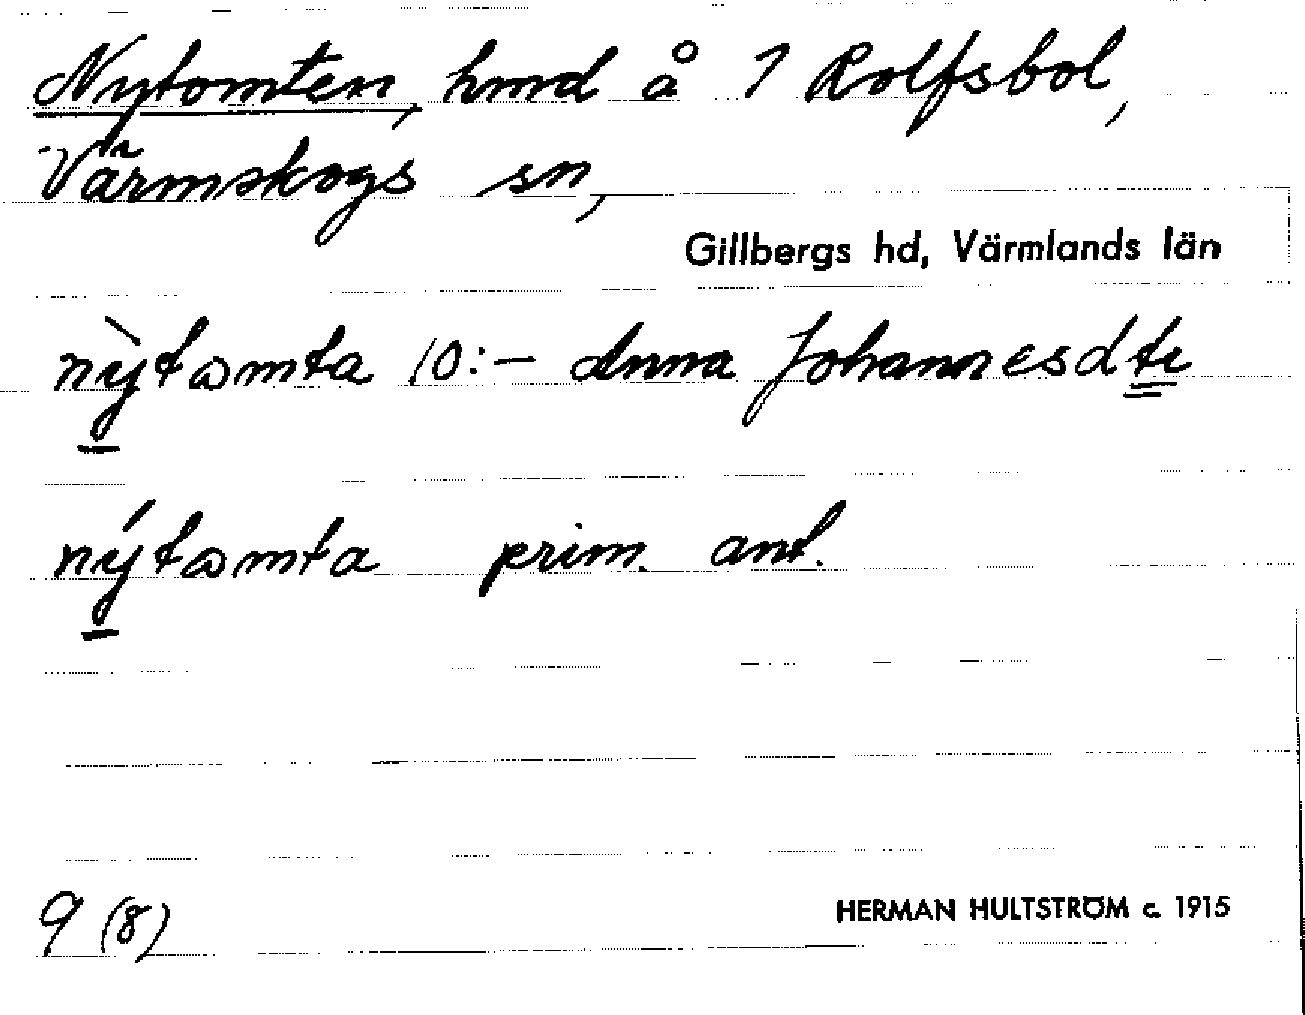 Nytomten, hmd å 1 Rolfsbol,
Värmskogs sn,
Gillbergs hd, Värmlands län
nỳtωmta 10:- Anna Johannesdtr
nýtωmta prim. ant.
9 (8)
HERMAN HULTSTRÖM c. 1915